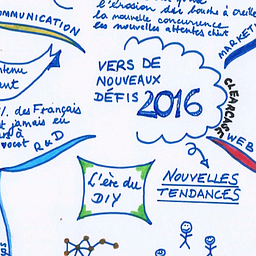 COMMUNICATION
l'érosion du bouche à oreille
la nouvelle concurrence
les nouvelles attentes client
MARKETI
VERS DE
NOUVEAUX
DÉFIS 2016
CLEARCASE
WEB
ntenu
ant
% des Français
t jamais eu
rs à
vocat R&D
L'ère du
DIY
NOUVELLES
TENDANCES